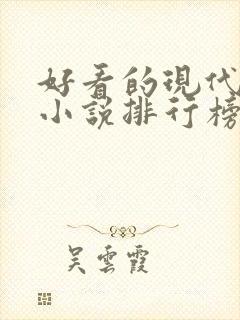 好看的現代
小說排行榜
吳雲霞